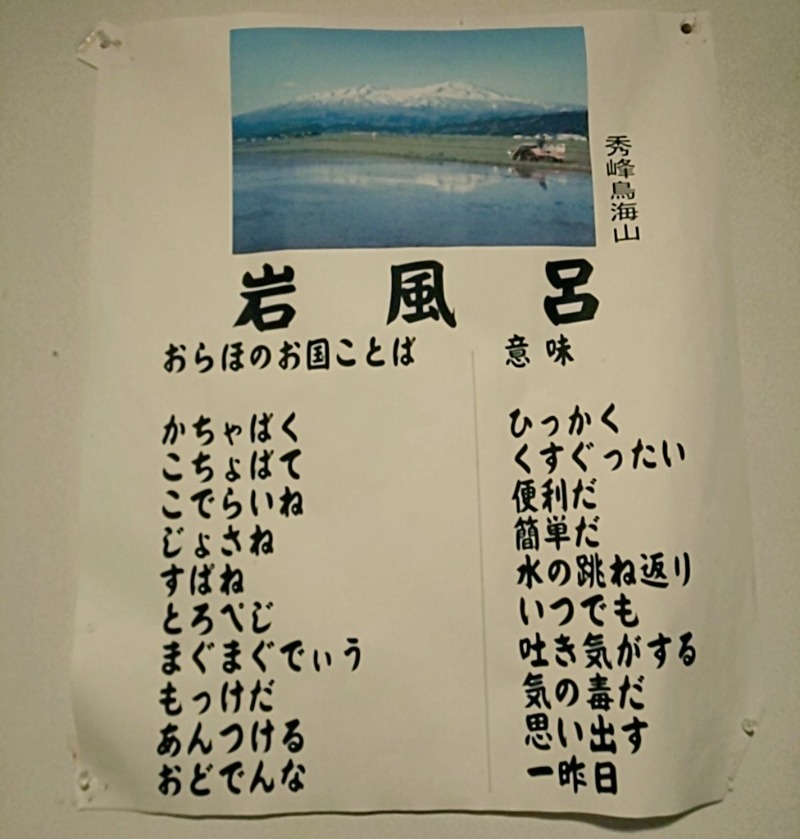 秀峰鳥海山
岩風呂
おらほのお国ことば 意味
かちゃばく ひっかく
こちょばて くすぐったい
こでらいね 便利だ
じょさね 簡単だ
すばね 水の跳ね返り
とろぺじ いつでも
まぐまぐでぃう 吐き気がする
もっけだ 気の毒だ
あんつける 思い出す
おどでんな 一昨日